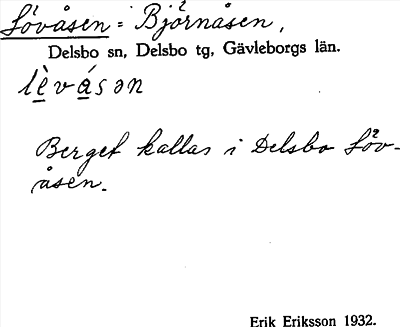 Lövåsen = Björnåsen,
Delsbo sn, Delsbo tg, Gävleborgs län.
lèvásən
Berget kallas i Delsbo Löv-
åsen.
Erik Eriksson 1932.